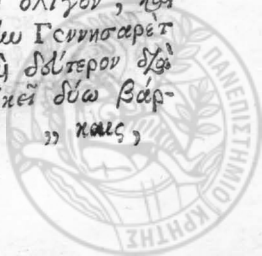 ὀλίγον, καὶ
Γεννησαρὲτ
δεύτερον διὰ
ἐκεῖ δύω βάρ-
„ καις,
ΠΑΝΕΠΙΣΤΗΜΙΟ ΚΡΗΤΗΣ